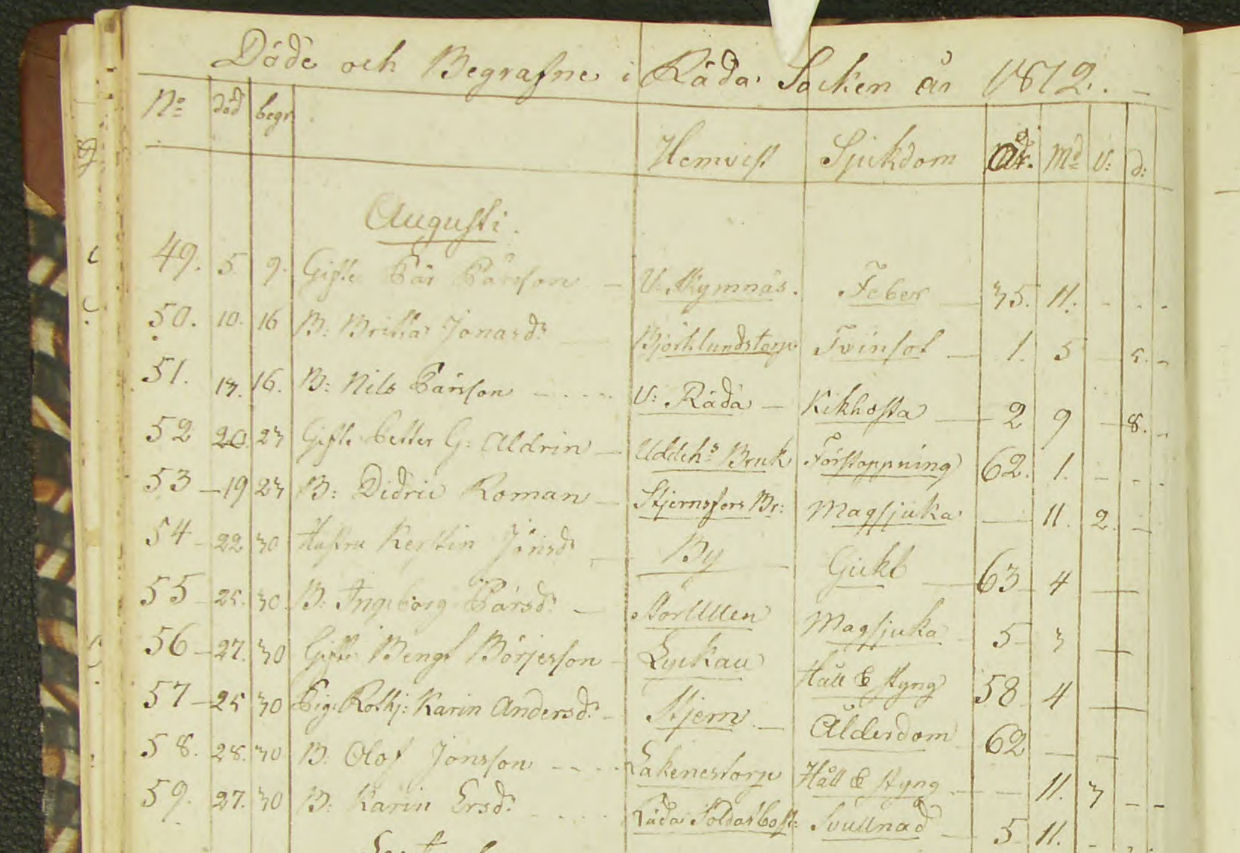 Döde och Begrafne i Råda Socken år 1812.
No död begr. Hemvist Sjukdom År. Md V: d:
Augusti.
49. 5. 9. Gifte Pär Pärsson U: Skymnäs. Feber 35. 11.
50. 10. 16 B: Britta Jonasdr Björklundstorp Tvinsot 1. 5 5.
51. 13. 16. B: Nils Pärsson U: Råda Kikhosta 2 9 8.
52 20. 23 Gifte Petter G: Aldrin Uddehs Bruk Förstoppning 62. 1.
53 19 23 B: Didric Roman Stjernsfors Br: Magsjuka 11. 2.
54 22 30 Hustru Kerstin Jönsdr By Gickt 63 4
55 25. 30 B: Ingeborg Pärsdr StorUllen Magsjuka 5 3
56 27. 30 Gifte Bengt Börjesson Håll & styng 58 4
57 25 30 Pig: Karin Andersdr Stjern Ålderdom 62
58. 28. 30 B: Olof Jonsson Lakenestorp Håll & styng 11. 3
59. 27. 30 B: Karin Ersdr Råda Svullnad 5 11.